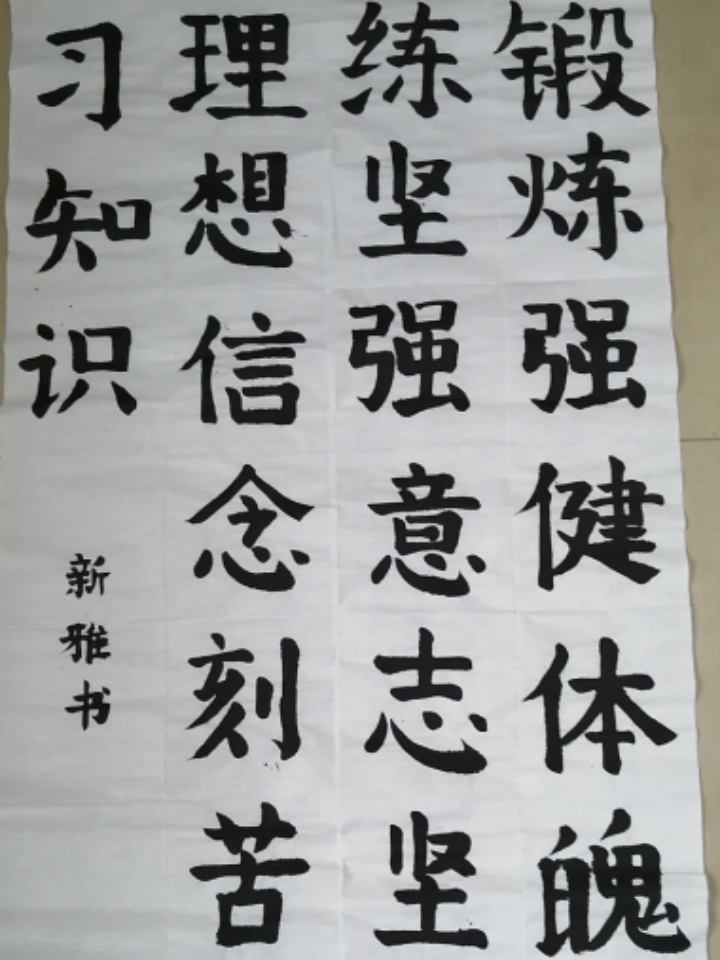 锻炼强健体魄
练坚强意志坚
理想信念刻苦
习知识
新雅书